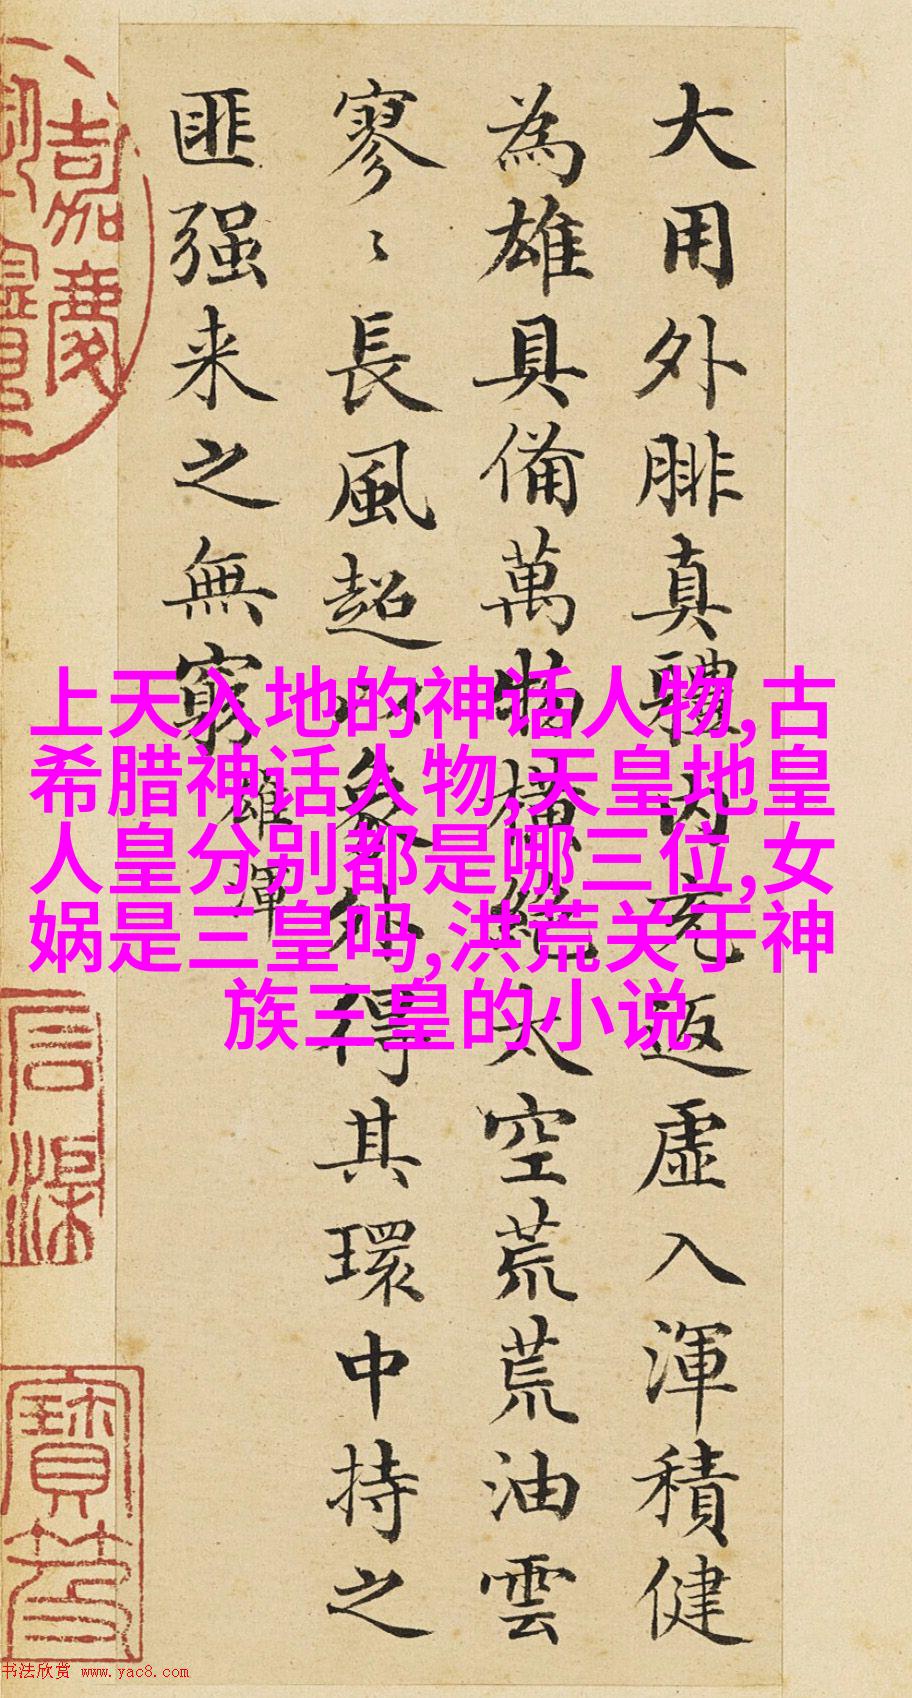 大用外腓真體内充返虛入渾積健
為雄具備萬物橫絕太空荒荒油雲
寥〻長風超以象外得其環中持之
匪强来之無窮
雄渾
上天入地的神话人物,古
希腊神话人物,天皇地皇
人皇分别都是哪三位,女
娲是三皇吗,洪荒关于神
族三皇的小说
嘉慶
书法欣赏 www.yac8.com